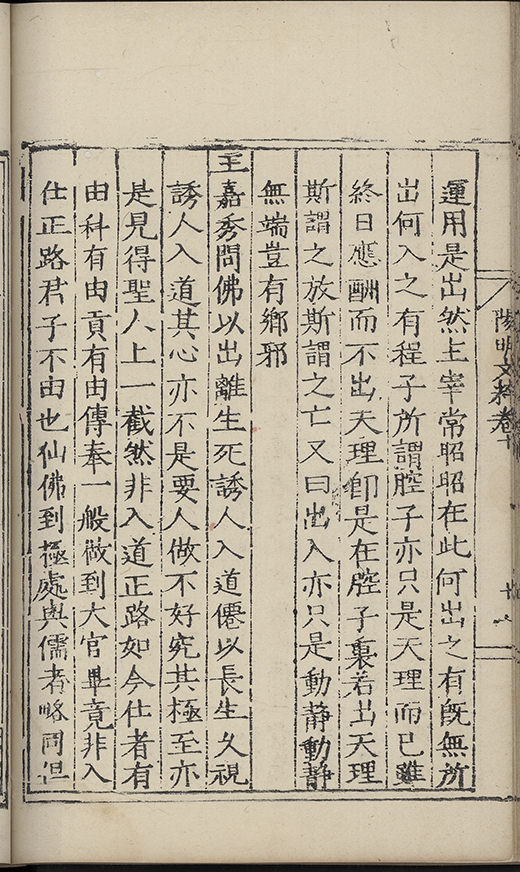 陽明文粹卷十
運用是出然主宰常昭昭在此何出之有旣無所
出何入之有程子所謂腔子亦只是天理而已雖
終日應酬而不出天理卽是在腔子裏若出天理
斯謂之放斯謂之亡又曰出入亦只是動靜動靜
無端豈有鄉邪
王嘉秀問佛以出離生死誘人入道僊以長生久視
誘人入道其心亦不是要人做不好究其極至亦
是見得聖人上一截然非入道正路如今仕者有
由科有由貢有由傳奉一般做到大官畢竟非入
仕正路君子不由也仙佛到極處與儒者略同但